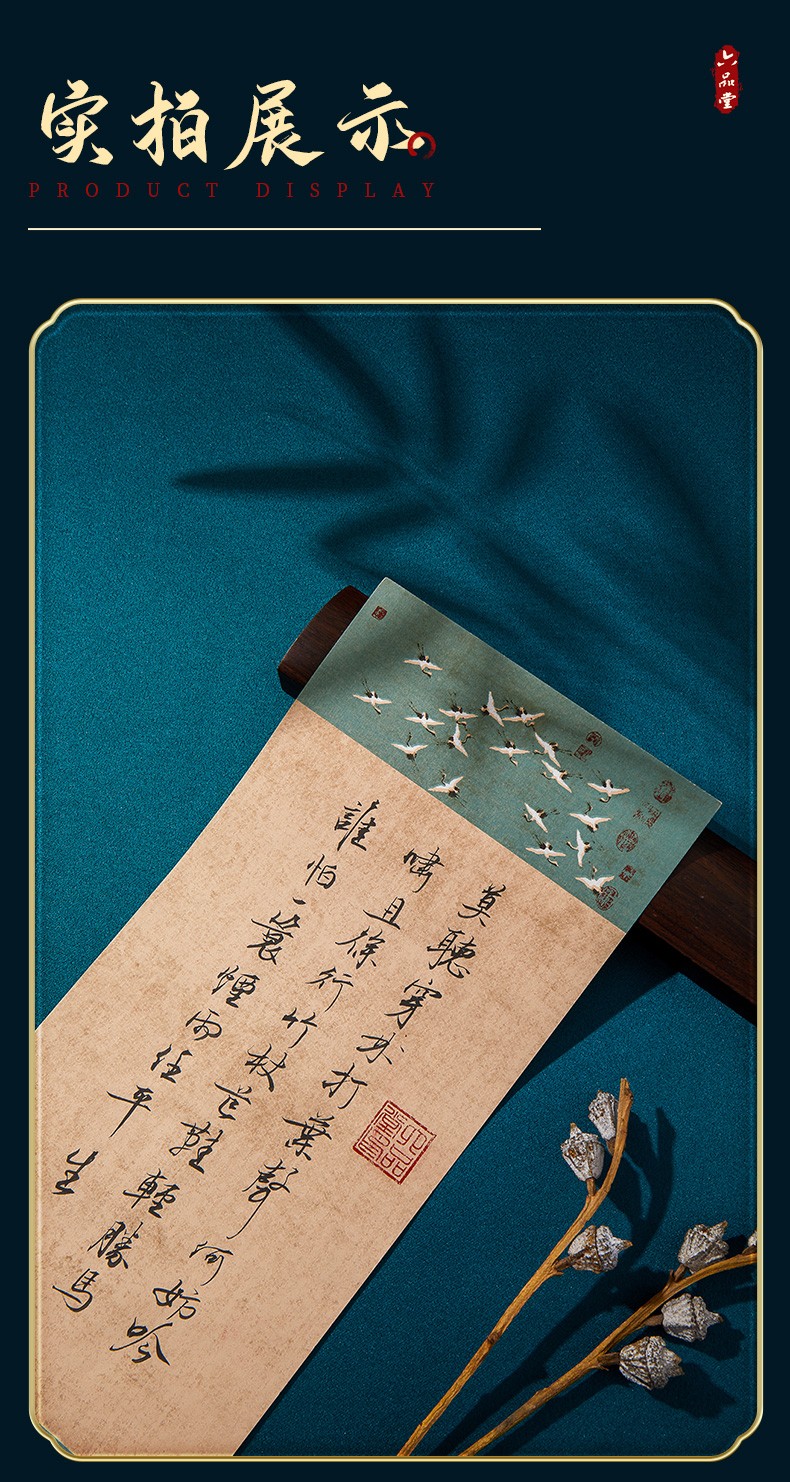 实拍展示
PRODUCT DISPLAY
六品堂
莫聽穿林打葉聲何妨吟
嘯且徐行竹杖芒鞋輕勝馬
誰怕一蓑煙雨任平生